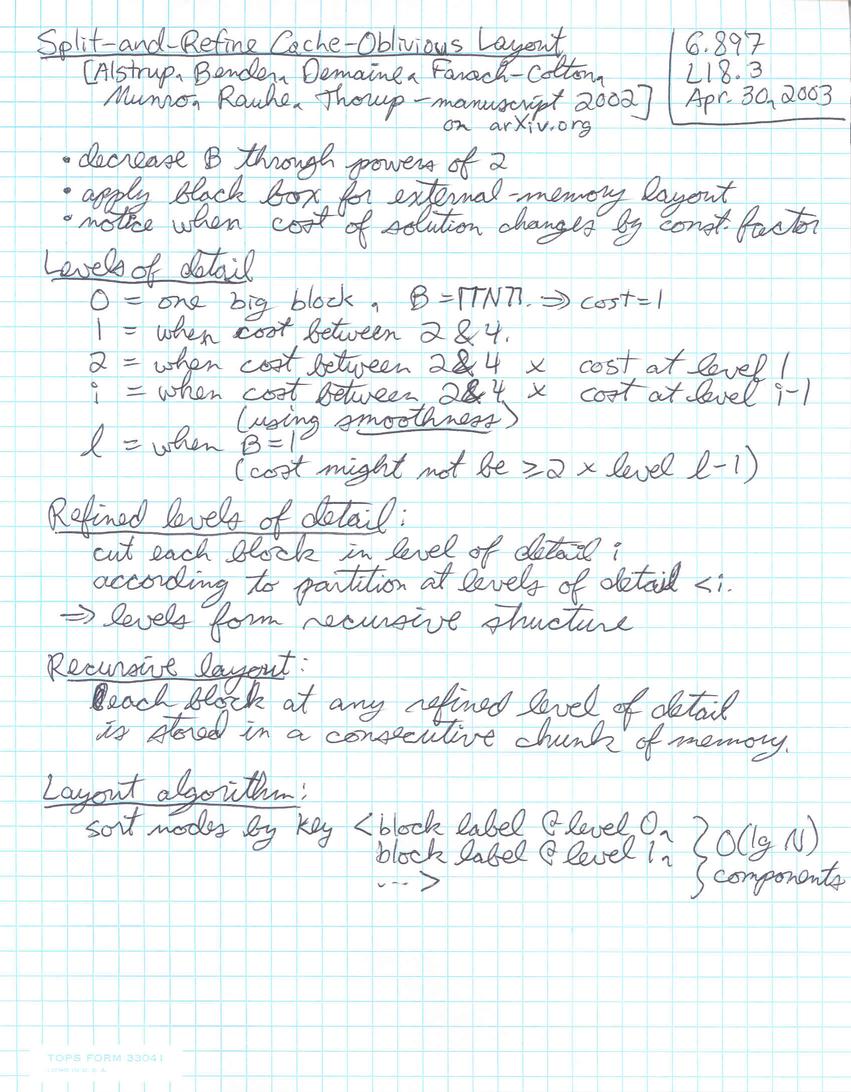 Split-and-Refine Cache-Oblivious Layout
[Alstrup, Bender, Demaine, Farach-Colton,
Munro, Rauhe, Thorup – manuscript 2002]
on arXiv.org
6.897
L18.3
Apr. 30, 2003
• decrease B through powers of 2
• apply black box for external-memory layout
• notice when cost of solution changes by const. factor
Levels of detail
0 = one big block, B = ⌈⌈N⌉⌉. ⇒ cost = 1
1 = when cost between 2 & 4.
2 = when cost between 2 & 4 × cost at level 1
i = when cost between 2 & 4 × cost at level i-1
(using smoothness)
l = when B = 1
(cost might not be ≥ 2 × level l-1)
Refined levels of detail:
cut each block in level of detail i
according to partition at levels of detail < i.
⇒ levels form recursive structure
Recursive layout:
each block at any refined level of detail
is stored in a consecutive chunk of memory.
Layout algorithm:
sort nodes by key <block label @ level 0,
block label @ level 1,
...>
} O(lg N)
components
TOPS FORM 33041